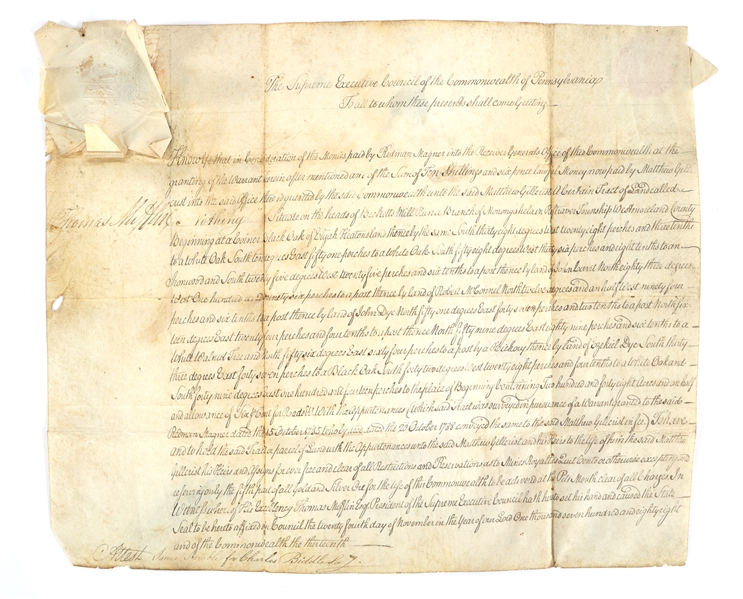 The Supreme Executive Council of the Commonwealth of Pennsylvania
To all to whom these presents shall come Greeting
Know Ye that in Consideration of the Monies paid by Redman Magner into the Receiver Generals Office of this Commonwealth at the
granting of the Warrant herein after mentioned and of the Sum of Ten Shillings and six pence lawful Money now paid by Matthew
said into the said Office there is granted by the said Commonwealth unto the said Matthew a Certain Tract of Land called
Thomas Mifflin
Situate on the heads of Mill Branch of Monongahela in Township Westmoreland County
Beginning at a Corner Black Oak of Elijah Heatons land thence by the same South thirty eight degrees West twenty eight perches and three tenths
to a White Oak South ten degrees East fifty one perches to a White Oak South fifty eight degrees West thirty six perches and eight tenths to an
Ironwood and South twenty five degrees West twenty five perches and six tenths to a post thence by land of John North eighty three degrees
West One hundred and ninety six perches to a post thence by land of Robert McConnel North twelve degrees and an half West ninety four
perches and six tenths to a post thence by land of John Dye North fifty one degrees East forty seven perches and two tenths to a post North fif-
teen degrees East twenty four perches and four tenths to a post thence North fifty nine degrees East eighty nine perches and six tenths to a
White Walnut Tree and North fifty six degrees East sixty four perches to a post by a Hickory thence by land of Ezekiel Dye South thirty
three degrees East forty seven perches to a Black Oak South forty two degrees West twenty eight perches and four tenths to a White Oak and
South forty nine degrees East one hundred and fourteen perches to the place of Beginning Containing Two hundred and forty eight Acres and an half
and allowance of Six P Cent for Roads &c With the Appurtenances (which said Tract was surveyed in pursuance of a Warrant granted to the said
Redman Magner dated the 15 October 1785 who by deed dated the 20 October 1788 conveyed the same to the said Matthew in fee) To have
and to hold the said Tract or parcel of Land with the Appurtenances unto the said Matthew and his heirs to the Use of him the said Matthew
his Heirs and Assigns forever free and clear of all Restrictions and Reservations as to Mines Royalties Quit Rents or otherwise excepting and
reserving only the fifth part of all Gold and Silver Ore for the Use of this Commonwealth to be delivered at the Pits Mouth clear of all Charges In
Witness whereof his Excellency Thomas Mifflin Esq President of the Supreme Executive Council hath hereto set his hand and caused the State
Seal to be hereto affixed in Council the twenty fourth day of November in the Year of our Lord One thousand seven hundred and eighty eight
and of the Commonwealth the thirteenth
Attest James Trimble for Charles Biddle Secy